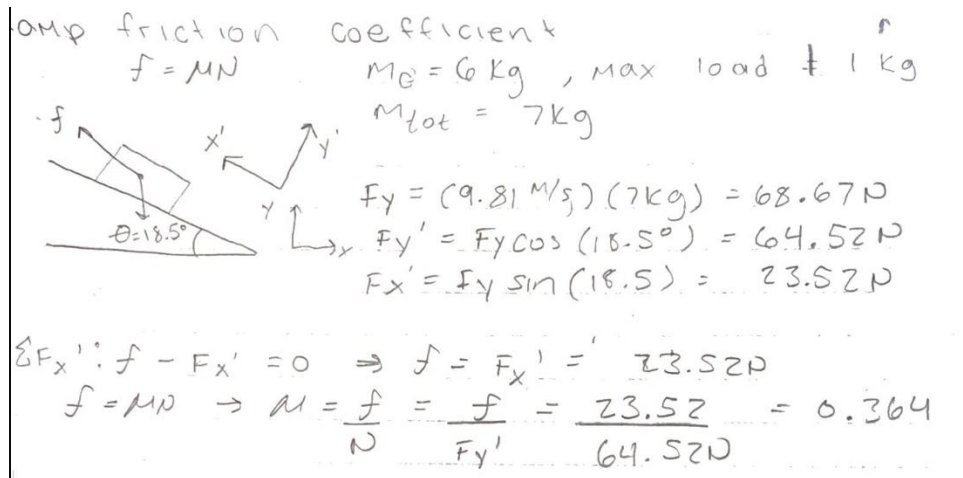 amp friction coefficient
f = μN
M_G = 6 Kg , Max load 1 kg
M_tot = 7kg
f
x'
y'
y
x
θ=18.5°
Fy = (9.81 M/s) (7kg) = 68.67N
Fy' = Fy cos (18.5°) = 64.52N
Fx' = Fy sin (18.5) = 23.52N
ΣFx': f - Fx' = 0 ⇒ f = Fx' = 23.52N
f = μN → μ = f/N = f/Fy' = 23.52/64.52N = 0.364